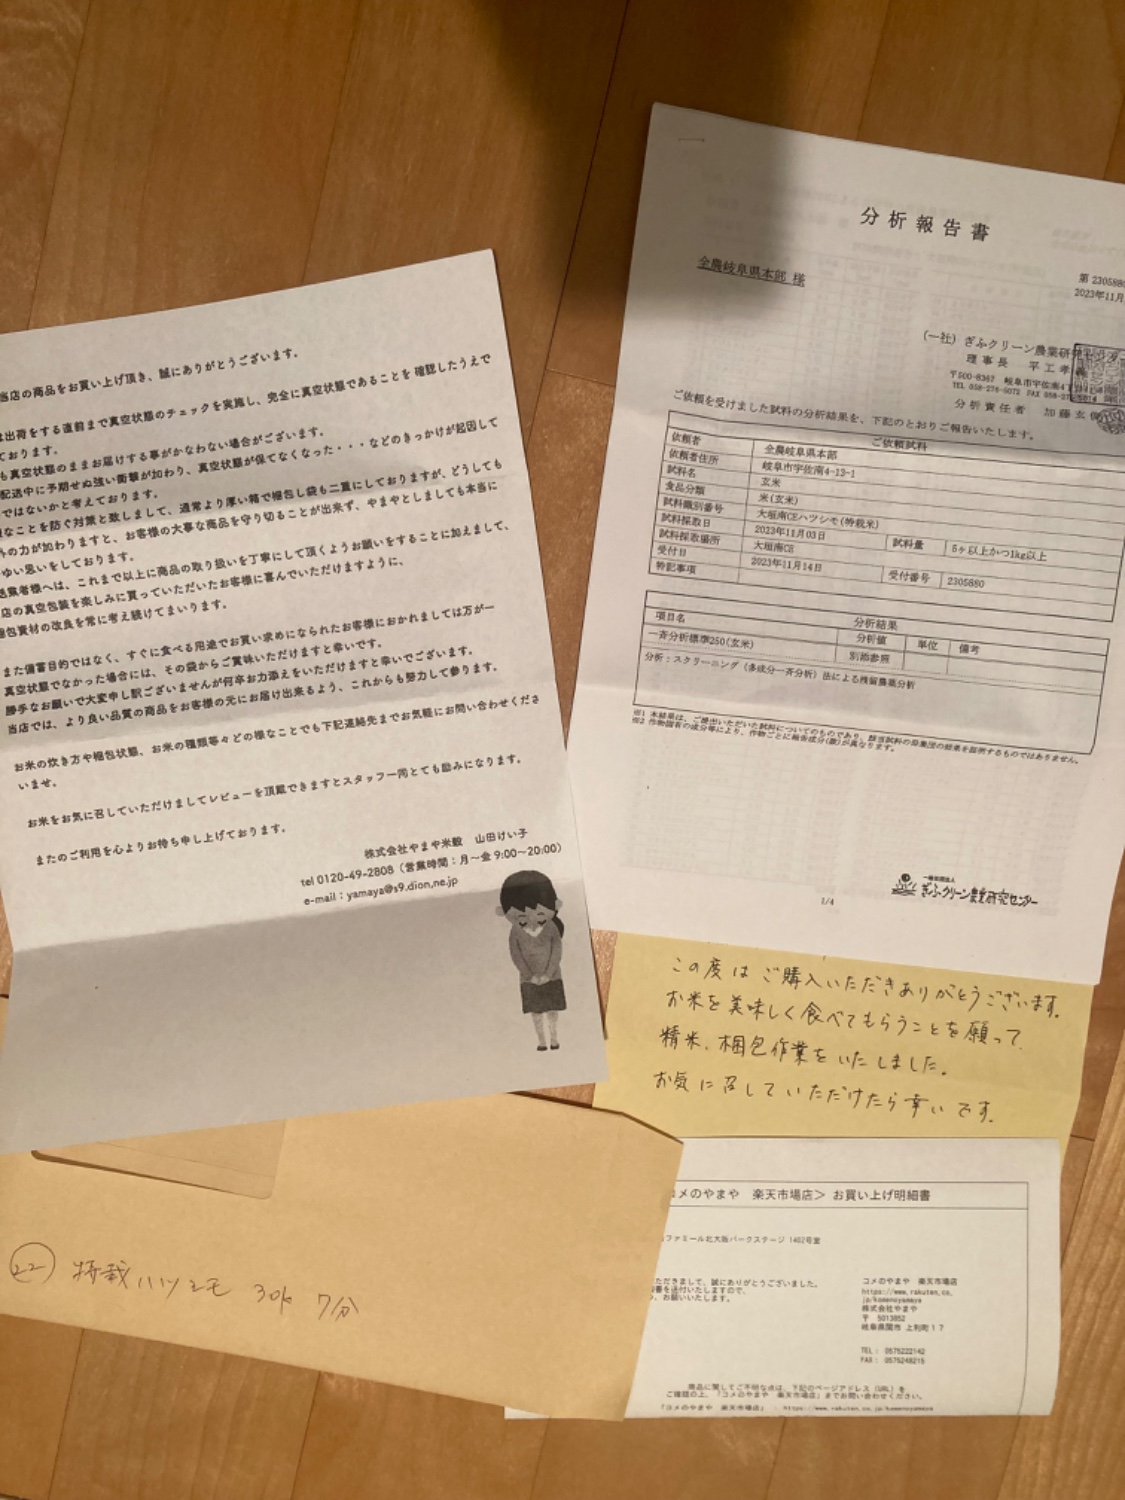 当店の商品をお買い上げ頂き、誠にありがとうございます。
は出荷をする直前まで真空状態のチェックを実施し、完全に真空状態であることを 確認したうえで
ております。
も真空状態のままお届けする事がかなわない場合がございます。
配送中に予期せぬ強い衝撃が加わり、真空状態が保てなくなった・・・などのきっかけが起因して
ではないかと考えております。
なことを防ぐ対策と致しまして、通常より厚い箱で梱包し袋も二重にしておりますが、どうしても
外の力が加わりますと、お客様の大事な商品を守り切ることが出来ず、やまやとしましても本当に
ゆい思いをしております。
送業者様へは、これまで以上に商品の取り扱いを丁寧にして頂くようお願いをすることに加えまして、
店の真空包装を楽しみに買っていただいたお客様に喜んでいただけますように、
梱包資材の改良を常に考え続けてまいります。
また備蓄目的ではなく、すぐに食べる用途でお買い求めになられたお客様におかれましては万が一
真空状態でなかった場合には、その袋からご賞味いただけますと幸いです。
勝手なお願いで大変申し訳ございませんが何卒お力添えをいただけますと幸いでございます。
当店では、より良い品質の商品をお客様の元にお届け出来るよう、これからも努力して参ります。
お米の炊き方や梱包状態、お米の種類等々どの様なことでも下記連絡先までお気軽にお問い合わせくださ
いませ。
お米をお気に召していただけましてレビューを頂戴できますとスタッフ一同とても励みになります。
またのご利用を心よりお待ち申し上げております。
株式会社やまや米穀 山田けい子
tel 0120-49-2808（営業時間：月～金 9:00～20:00）
e-mail：yamaya@s9.dion.ne.jp
分析報告書
全農岐阜県本部 様
第 2305880
2023年11月
(一社) ぎふクリーン農業研究センター
理事長 平工孝義
〒500-8367 岐阜市宇佐南4丁
TEL 058-276-5072 FAX 058-276-5014
分析責任者 加藤玄
ご依頼を受けました試料の分析結果を、下記のとおりご報告いたします。
ご依頼試料
依頼者 全農岐阜県本部
依頼者住所 岐阜市宇佐南4-13-1
試料名 玄米
食品分類 米(玄米)
試料識別番号 大垣南CEハツシモ(特栽米)
試料採取日 2023年11月03日 試料量 5ヶ以上かつ1kg以上
試料採取場所 大垣南CE
受付日 2023年11月14日 受付番号 2305880
特記事項
分析結果
項目名 分析値 単位 備考
一斉分析標準250(玄米) 別添参照
分析：スクリーニング（多成分一斉分析）法による残留農薬分析
※1 本結果は、ご提出いただいた試料についてのものであり、該当試料の母集団の結果を証明するものではありません。
※2 作物固有の成分等により、作物ごとに報告成分(数)が異なります。
1/4
一般社団法人
ぎふクリーン農業研究センター
この度はご購入いただきありがとうございます。
お米を美味しく食べてもらうことを願って、
精米、梱包作業をいたしました。
お気に召していただけたら幸いです。
22 特栽ハツシモ 30k 7分
コメのやまや 楽天市場店＞ お買い上げ明細書
ファミール北大阪パークステージ 1402号室
ただきまして、誠にありがとうございました。
書を送付いたしますので、
、お願いいたします。
コメのやまや 楽天市場店
https://www.rakuten.co.
jp/komenoyamaya
株式会社やまや
〒 5013852
岐阜県関市 上利町１７
TEL： 0575222142
FAX： 0575248215
商品に関してご不明な点は、下記のページアドレス（URL）を
ご確認の上、「コメのやまや 楽天市場店」までお問い合わせください。
「コメのやまや 楽天市場店」 : https://www.rakuten.co.jp/komenoyamaya